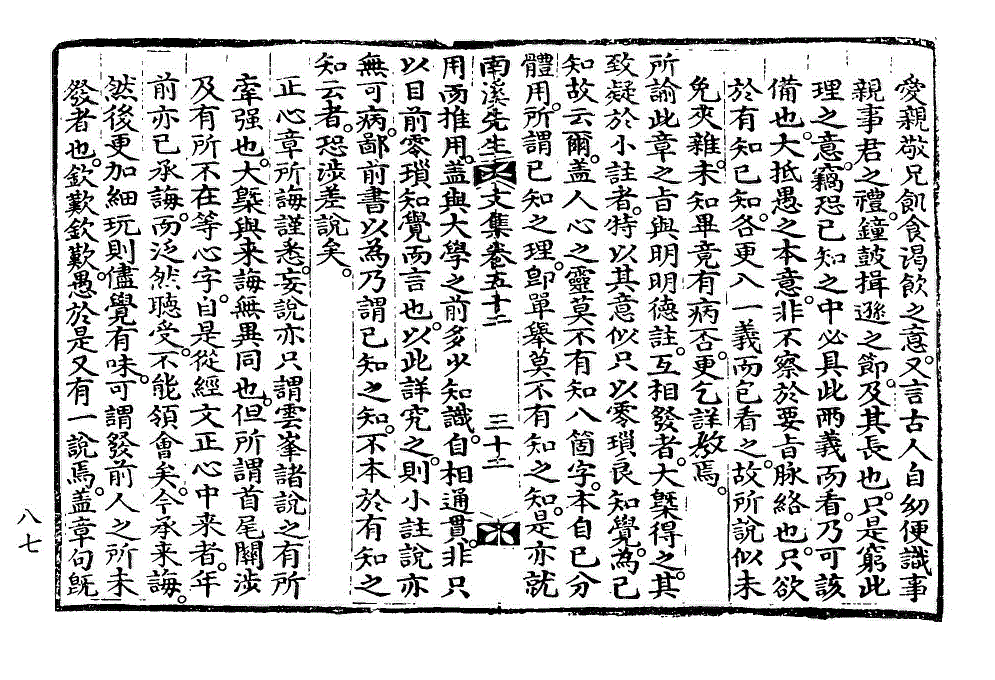 愛親敬兄飢食渴飮之意。又言古人自幼便識事
親事君之禮。鐘鼓揖遜之節。及其長也。只是窮此
理之意。竊恐已知之中必具此兩義而看。乃可該
備也。大抵愚之本意。非不察於要旨脉絡也。只欲
於有知已知。各更入一義而包看之。故所說似未
免夾雜。未知畢竟有病否。更乞詳敎焉。
所諭此章之旨與明明德註。互相發者。大槩得之。其
致疑於小註者。特以其意似只以零瑣良知覺。爲已
知故云爾。蓋人心之靈莫不有知八箇字。本自已分
體用。所謂已知之理。卽單擧莫不有知之知。是亦就
南溪先生文集卷五十二 三十二
用而推用。蓋與大學之前多少知識。自相通貫。非只
以目前零瑣知覺而言也。以此詳究之。則小註說亦
無可病。鄙前書以爲乃謂已知之知。不本於有知之
知云者。恐涉差說矣。
正心章所誨謹悉。妄說亦只謂雲峯諸說之有所
牽强也。大槩與來誨無異同也。但所謂首尾關涉
及有所不在等心字。自是從經文正心中來者。年
前亦已承誨。而泛然聽受。不能領會矣。今承來誨。
然後更加細玩。則儘覺有味。可謂發前人之所未
發者也。欽歎欽歎。愚於是又有一說焉。蓋章句旣
八七